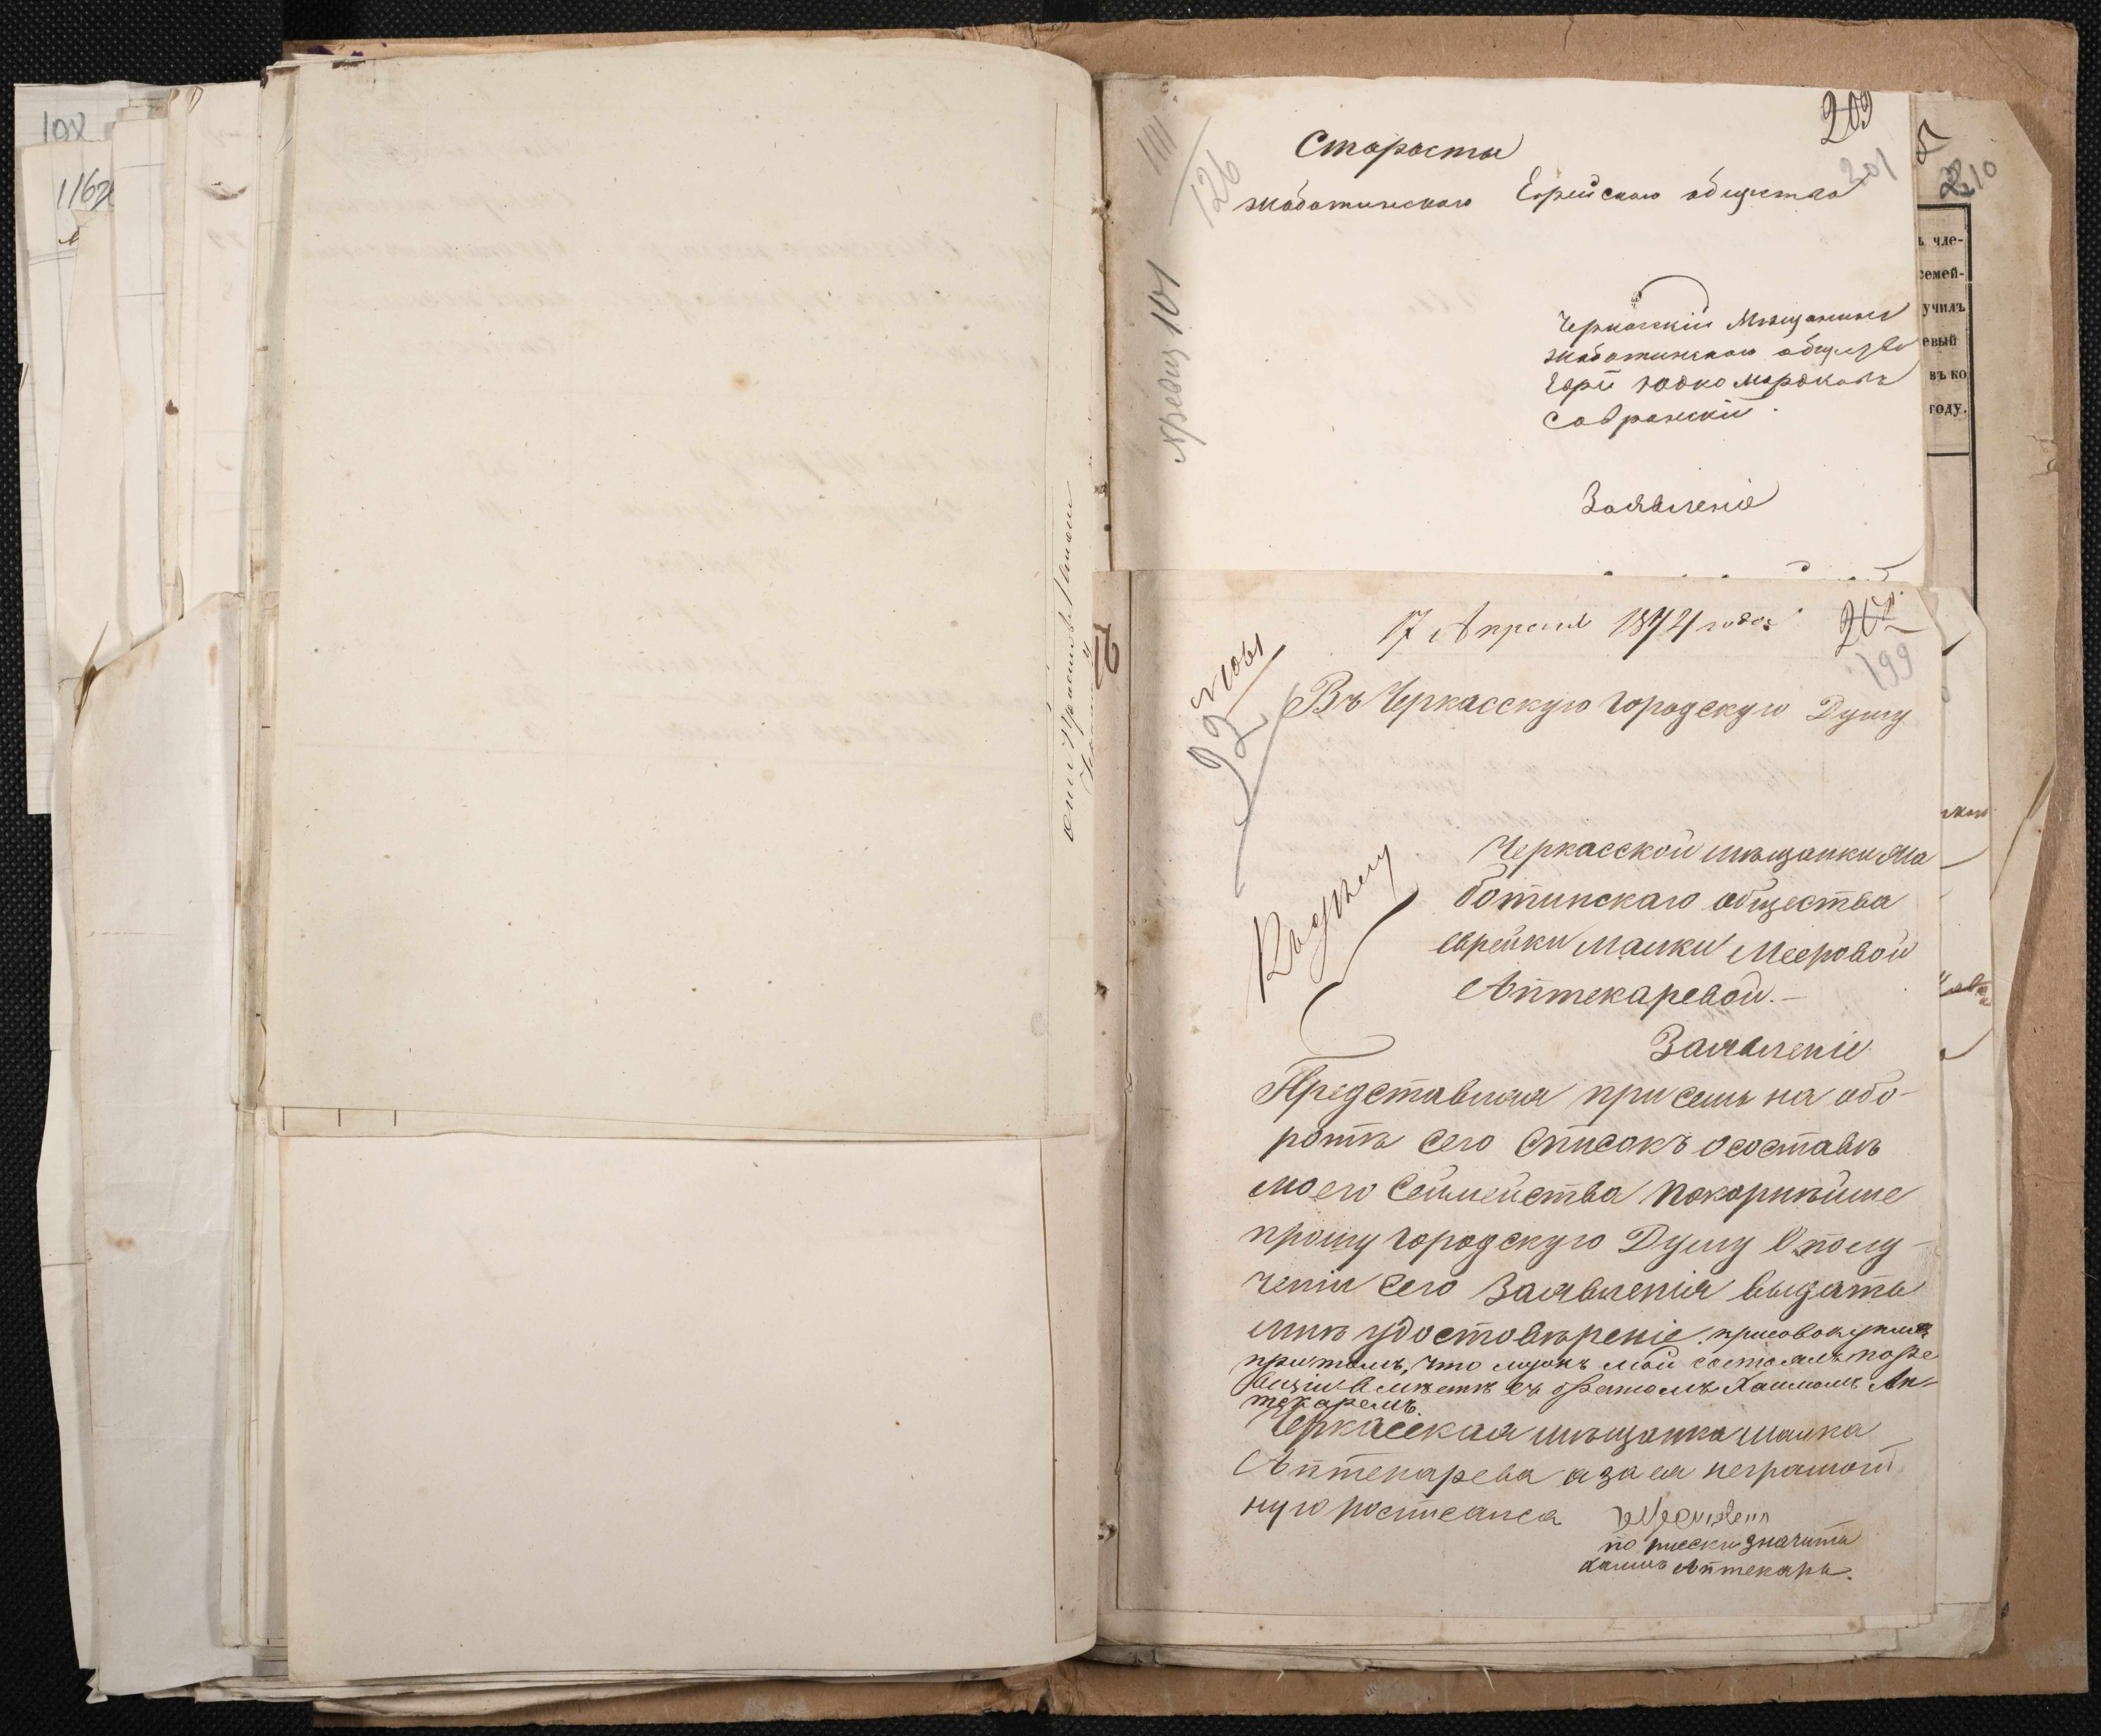 108
1162
209
201
210
1111
126
Старосты
жаботинскаго Еврейскаго общества
Черкаскій Мѣщанинъ
жаботинскаго общества
Еврей Юдко Мордковъ
Савранскій.
Заявленіе
ъ чле-
семей-
училъ
евый
въ ко
году.
76
17 Апреля 1874 года
199
№ 1061
92
Въ Черкасскую Городскую Думу
Къ дѣлу
Черкасской мѣщанки Жа
ботинскаго общества
еврейки Малки Мееровой
Аптекаревой.—
Заявленіе
Представляя при семъ на обо-
ротѣ сего списокъ о составѣ
моего Семейства покорнѣйше
прошу Городскую Думу о полу-
ченіи сего Заявленія выдать
мнѣ удостовѣреніе. присовокупляя
притомъ, что мужъ мой состоялъ по ре
визіи вмѣстѣ съ братомъ Хаимомъ Ап-
текаремъ.
Черкасская мѣщанка Малка
Аптекарева а за ея неграмот
ную росписался
по русски значитъ
Хаимъ Аптекарь.